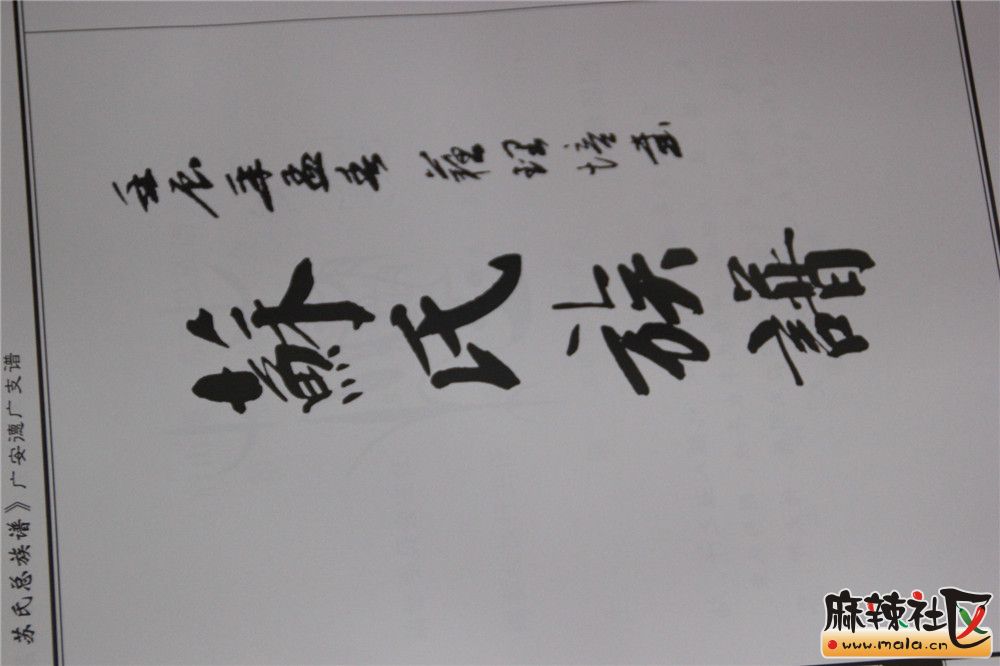 蘇氏族譜
辰年孟春 蘇
苏氏总族谱》广安德广支谱
麻辣社区
www.mala.cn